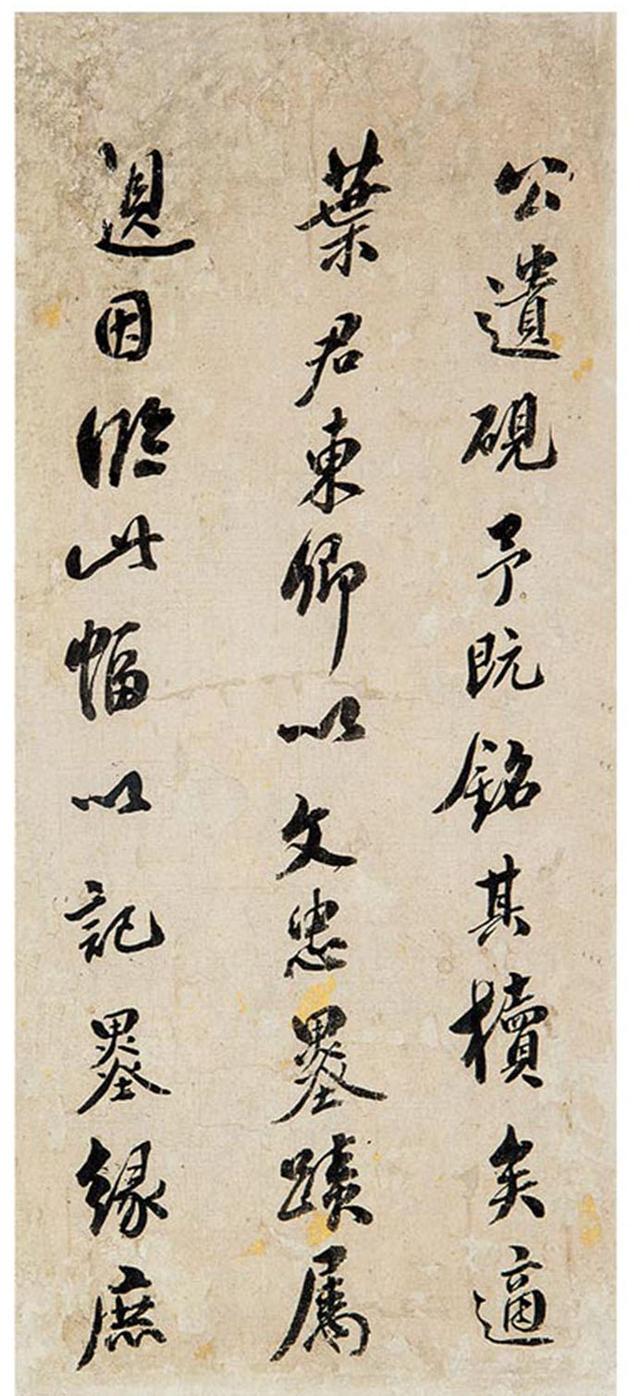 公遺硯予既銘其櫝矣適
葉君東卿以文忠墨蹟属
題因臨此幅以記墨緣庶